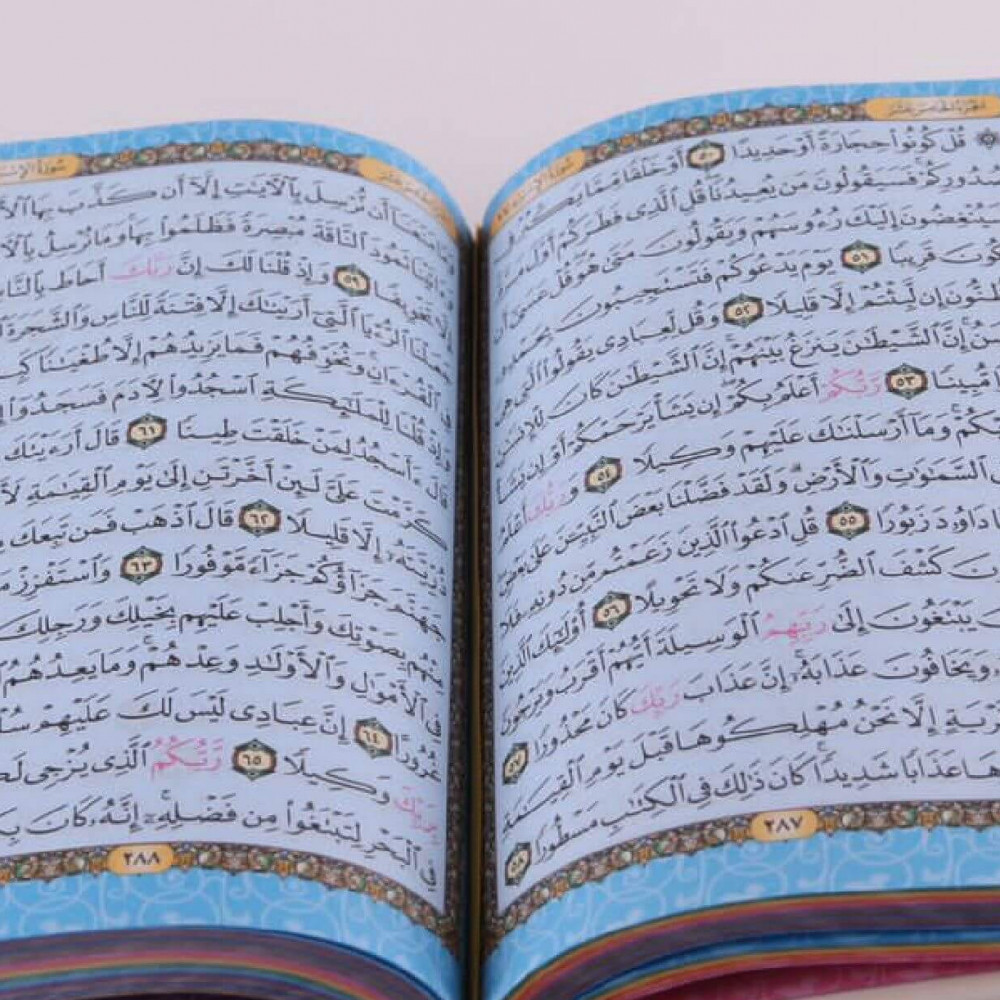 الجزء الخامس عشر
سورة الإسراء
۞ قُلْ كُونُوا۟ حِجَارَةً أَوْ حَدِيدًا ٥٠ أَوْ خَلْقًا مِّمَّا يَكْبُرُ فِى
صُدُورِكُمْ فَسَيَقُولُونَ مَن يُعِيدُنَا قُلِ ٱلَّذِى فَطَرَكُمْ أَوَّلَ مَرَّةٍ
فَسَيُنْغِضُونَ إِلَيْكَ رُءُوسَهُمْ وَيَقُولُونَ مَتَىٰ هُوَ قُلْ عَسَىٰٓ أَن
يَكُونَ قَرِيبًا ٥١ يَوْمَ يَدْعُوكُمْ فَتَسْتَجِيبُونَ بِحَمْدِهِۦ
إِن لَّبِثْتُمْ إِلَّا قَلِيلًا ٥٢ وَقُل لِّعِبَادِى يَقُولُوا۟ ٱلَّتِى هِىَ
إِنَّ ٱلشَّيْطَٰنَ يَنزَغُ بَيْنَهُمْ إِنَّ ٱلشَّيْطَٰنَ كَانَ لِلْإِنسَٰنِ
مُّبِينًا ٥٣ رَّبُّكُمْ أَعْلَمُ بِكُمْ إِن يَشَأْ يَرْحَمْكُمْ أَوْ إِن يَشَأْ
وَمَآ أَرْسَلْنَٰكَ عَلَيْهِمْ وَكِيلًا ٥٤ وَرَبُّكَ أَعْلَمُ
ٱلسَّمَٰوَٰتِ وَٱلْأَرْضِ وَلَقَدْ فَضَّلْنَا بَعْضَ ٱلنَّبِيِّۦنَ عَلَىٰ بَعْضٍ
دَاوُۥدَ زَبُورًا ٥٥ قُلِ ٱدْعُوا۟ ٱلَّذِينَ زَعَمْتُم مِّن دُونِهِۦ فَلَا
كَشْفَ ٱلضُّرِّ عَنكُمْ وَلَا تَحْوِيلًا ٥٦ أُو۟لَٰٓئِكَ ٱلَّذِينَ
يَبْتَغُونَ إِلَىٰ رَبِّهِمُ ٱلْوَسِيلَةَ أَيُّهُمْ أَقْرَبُ وَيَرْجُونَ
وَيَخَافُونَ عَذَابَهُۥٓ إِنَّ عَذَابَ رَبِّكَ كَانَ مَحْذُورًا ٥٧
قَرْيَةٍ إِلَّا نَحْنُ مُهْلِكُوهَا قَبْلَ يَوْمِ ٱلْقِيَٰمَةِ
عَذَابًا شَدِيدًا كَانَ ذَٰلِكَ فِى ٱلْكِتَٰبِ مَسْطُورًا ٥٨
٢٨٧
سورة
وَمَا مَنَعَنَآ أَن نُّرْسِلَ بِٱلْءَايَٰتِ إِلَّآ أَن كَذَّبَ بِهَا
وَءَاتَيْنَا ثَمُودَ ٱلنَّاقَةَ مُبْصِرَةً فَظَلَمُوا۟ بِهَا وَمَا نُرْسِلُ
إِلَّا تَخْوِيفًا ٥٩ وَإِذْ قُلْنَا لَكَ إِنَّ رَبَّكَ أَحَاطَ
جَعَلْنَا ٱلرُّءْيَا ٱلَّتِىٓ أَرَيْنَٰكَ إِلَّا فِتْنَةً لِّلنَّاسِ وَٱلشَّجَرَةَ
فِى ٱلْقُرْءَانِ وَنُخَوِّفُهُمْ فَمَا يَزِيدُهُمْ إِلَّا طُغْيَٰنًا
وَإِذْ قُلْنَا لِلْمَلَٰٓئِكَةِ ٱسْجُدُوا۟ لِءَادَمَ فَسَجَدُوٓا۟
قَالَ ءَأَسْجُدُ لِمَنْ خَلَقْتَ طِينًا ٦١ قَالَ أَرَءَيْتَكَ
كَرَّمْتَ عَلَىَّ لَئِنْ أَخَّرْتَنِ إِلَىٰ يَوْمِ ٱلْقِيَٰمَةِ
ذُرِّيَّتَهُۥٓ إِلَّا قَلِيلًا ٦٢ قَالَ ٱذْهَبْ فَمَن تَبِعَكَ
جَهَنَّمَ جَزَآؤُكُمْ جَزَآءً مَّوْفُورًا ٦٣ وَٱسْتَفْزِزْ
مِنْهُم بِصَوْتِكَ وَأَجْلِبْ عَلَيْهِم بِخَيْلِكَ وَرَجِلِكَ
فِى ٱلْأَمْوَٰلِ وَٱلْأَوْلَٰدِ وَعِدْهُمْ وَمَا يَعِدُهُمُ
غُرُورًا ٦٤ إِنَّ عِبَادِى لَيْسَ لَكَ عَلَيْهِمْ
بِرَبِّكَ وَكِيلًا ٦٥ رَّبُّكُمُ ٱلَّذِى يُزْجِى
فِى ٱلْبَحْرِ لِتَبْتَغُوا۟ مِن فَضْلِهِۦٓ إِنَّهُۥ كَانَ
٢٨٨